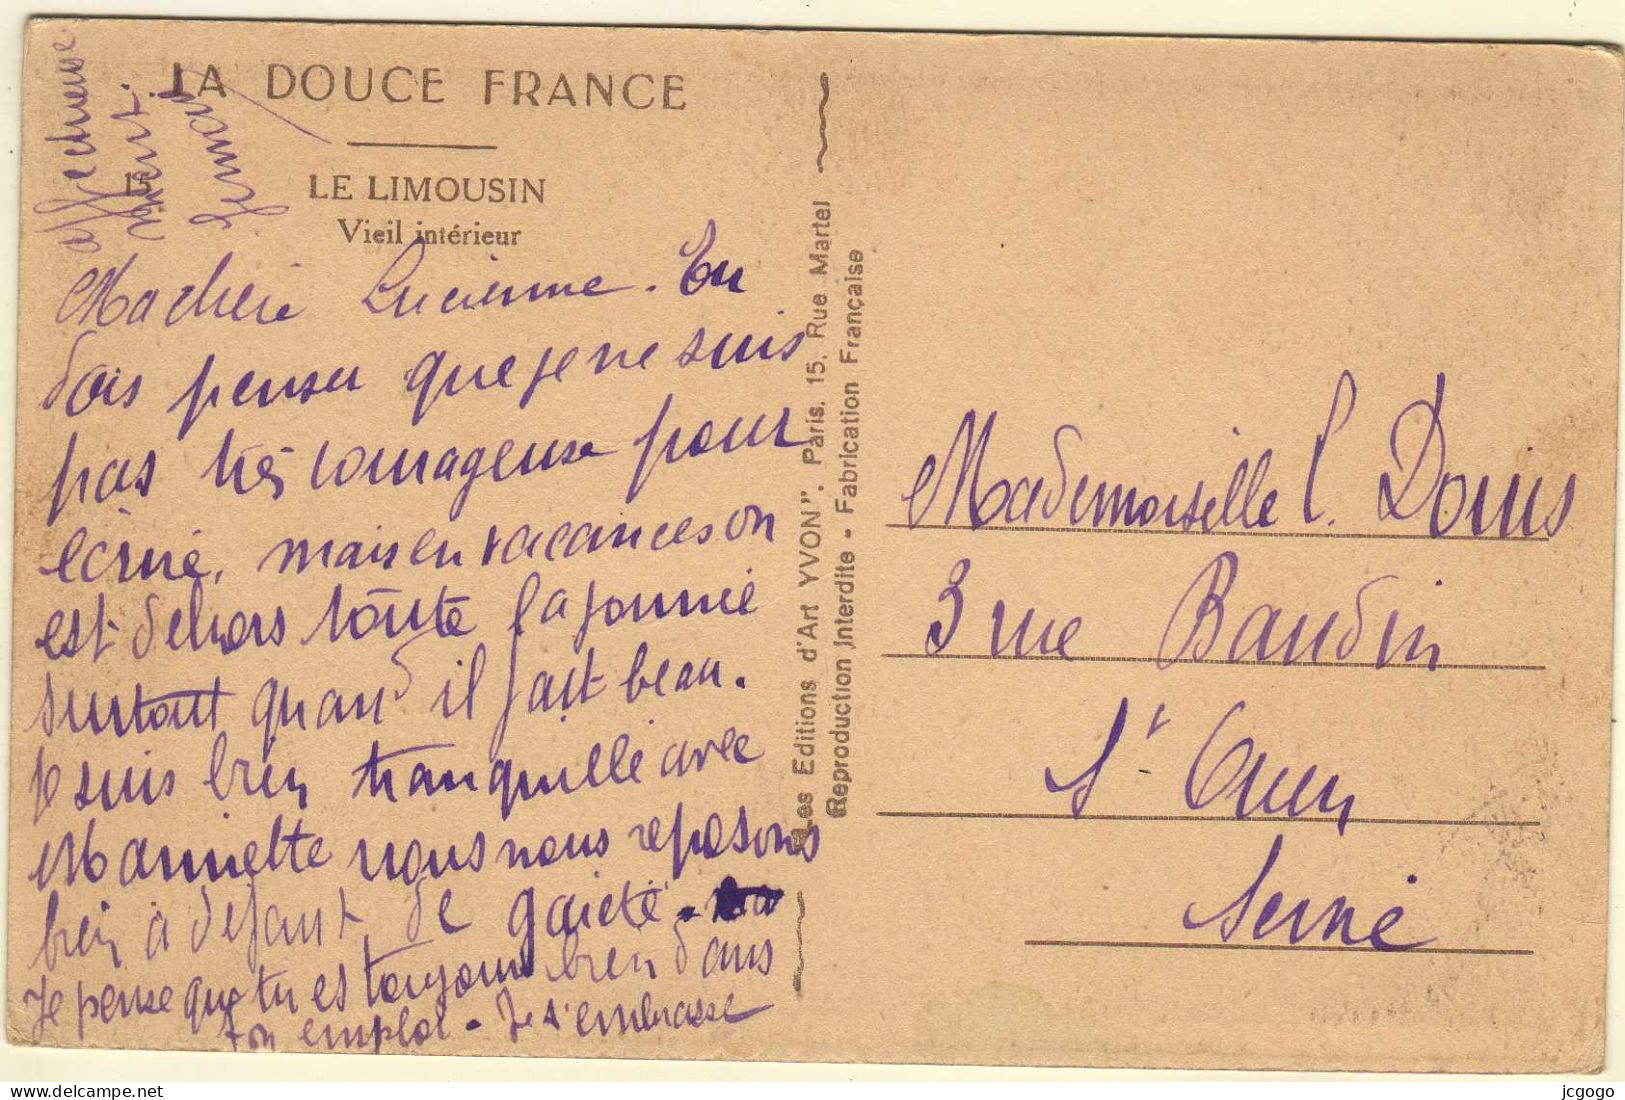 LA DOUCE FRANCE
15
LE LIMOUSIN
Vieil intérieur
Ma chérie Lucienne. Tu
dois penser que je ne suis
pas très courageuse pour
écrire, mais en vacances on
est dehors toute la journée
surtout quand il fait beau.
Je suis bien tranquille avec
Mannette nous nous reposons
bien à défaut de gaieté.
Je pense que tu es toujours bien dans
ton emploi - Je t'embrasse
affectueuse
ment.
Les Editions d'Art YVON". Paris. 15. Rue Martel
Reproduction Interdite - Fabrication Française
Mademoiselle L. Donis
3 rue Baudin
St Ouen
Seine
jcgogo